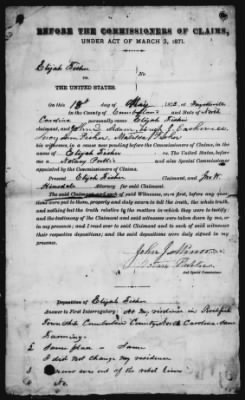 BEFORE THE COMMISSIONERS OF CLAIMS,
UNDER ACT OF MARCH 3, 1871.
Elijah Fisher
vs. No.
THE UNITED STATES.
On this 18th day of May 1873, at Fayetteville
in the County of Cumberland and State of North
Carolina personally came Elijah Fisher
claimant, and
Fisher, Fisher
his witnesses, in a cause now pending before the Commissioners of Claims, in the
name of Elijah Fisher vs. The United States, before
me a Notary Public and also Special Commissioner
appointed by the Commissioners of Claims.
Present Elijah Fisher Claimant, and Jno W.
Hinsdale Attorney for said Claimant.
The said Claimant and each of said witnesses, were first, before any questions
were put to them, properly and duly sworn to tell the truth, the whole truth,
and nothing but the truth relating to the matters in which they were to testify;
and the testimony of the Claimant and said witnesses were taken down by me, or
in my presence; and I read over to said Claimant and to each of said witnesses
their respective depositions; and said depositions were duly signed in my
presence.
John
Notary Public
and Special Commissioner
Deposition of Elijah Fisher
Answer to First Interrogatory: At my residence in Rockfish
Township Cumberland County North Carolina
Farming.
2 Same place - Same
3 I did not change my residence
4 I never were out of the rebel lines
5 No.